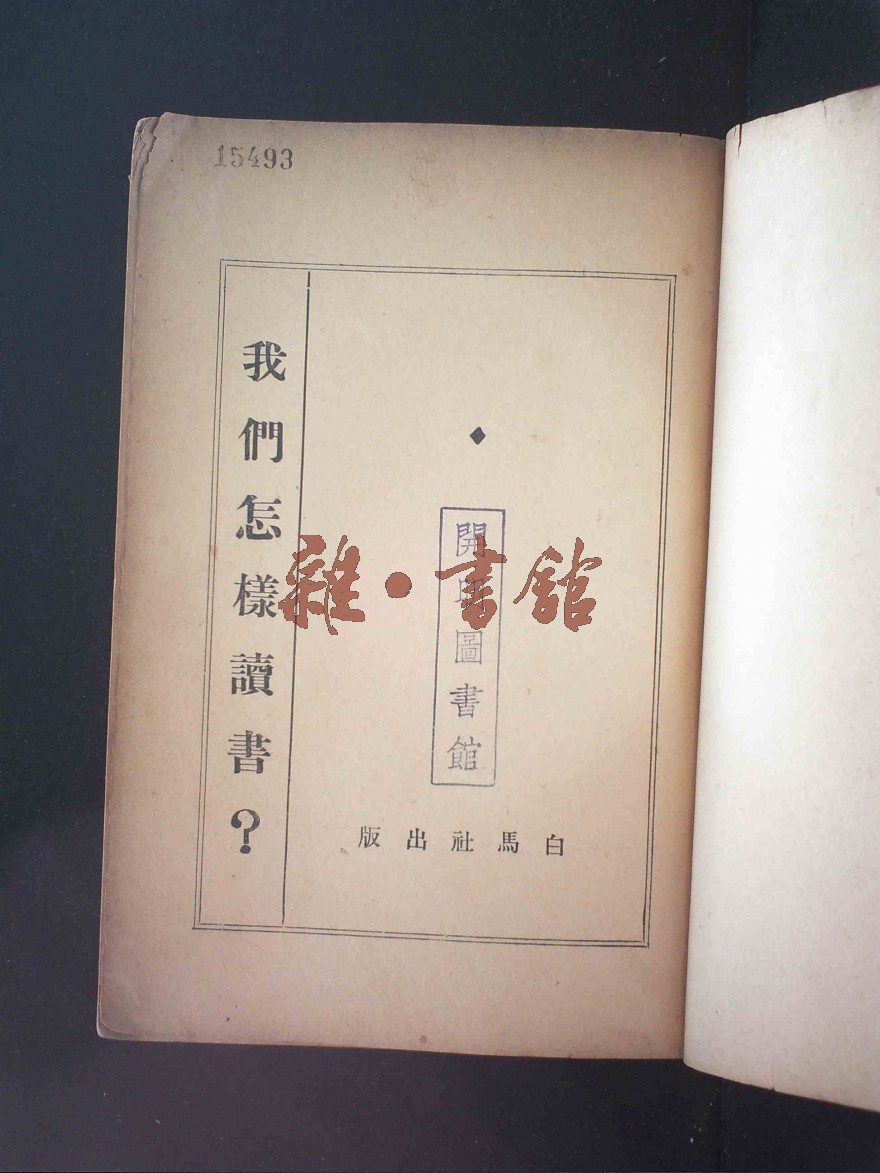 15493
我們怎樣讀書？
開明圖書館
白馬社出版
雜·書館